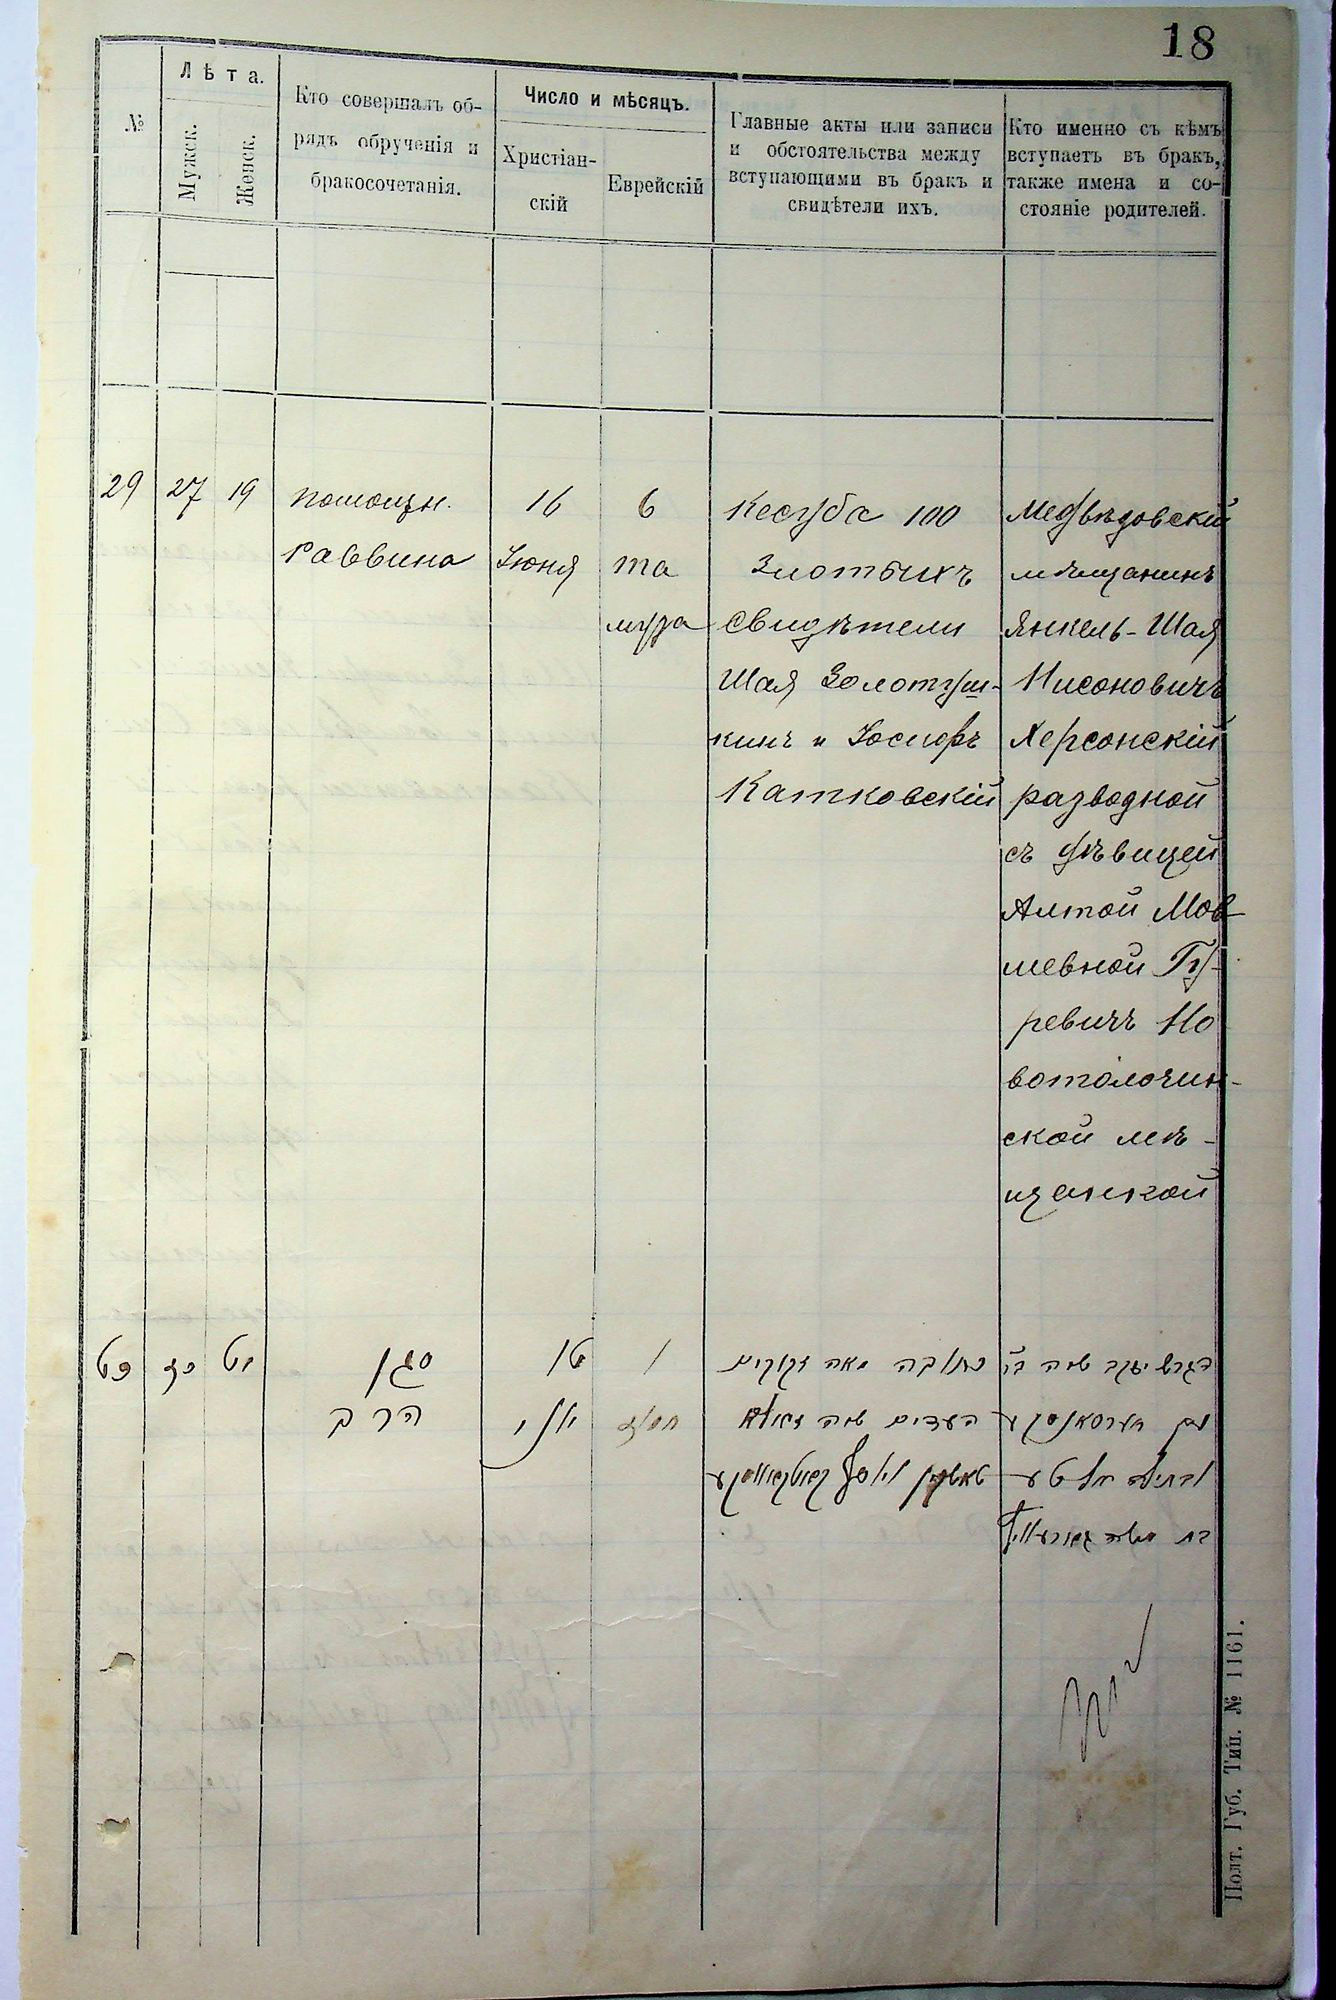 18
№
Лѣта.
Мужск.
Женск.
Кто совершалъ об-
рядъ обрученія и
бракосочетанія.
Число и мѣсяцъ.
Христіан-
скій
Еврейскій
Главные акты или записи
и обстоятельства между
вступающими въ бракъ и
свидѣтели ихъ.
Кто именно съ кѣмъ
вступаетъ въ бракъ,
также имена и со-
стояніе родителей.
29
27
19
помощн.
раввина
16
Іюня
6
та
муза
Кесуба 100
Злотыхъ
Свидѣтели
Шая Золотуш-
кинъ и Іосифъ
Катковскій
Медвѣдовскій
мѣщанинъ
Янкель-Шая
Нисоновичъ
Херсонскій
разводной
съ дѣвицей
Алтой Мов
шевной Гу-
ревичъ Но
вотолочин-
ской мѣ-
щанкой
כט
כז
יט
סגן
הרב
16
יוני
ו
תמוז
כתובה מאה זקוקים
העדים
הגרוש יעקב
והבתולה
בת משה
Полт. Губ. Тип. № 1161.